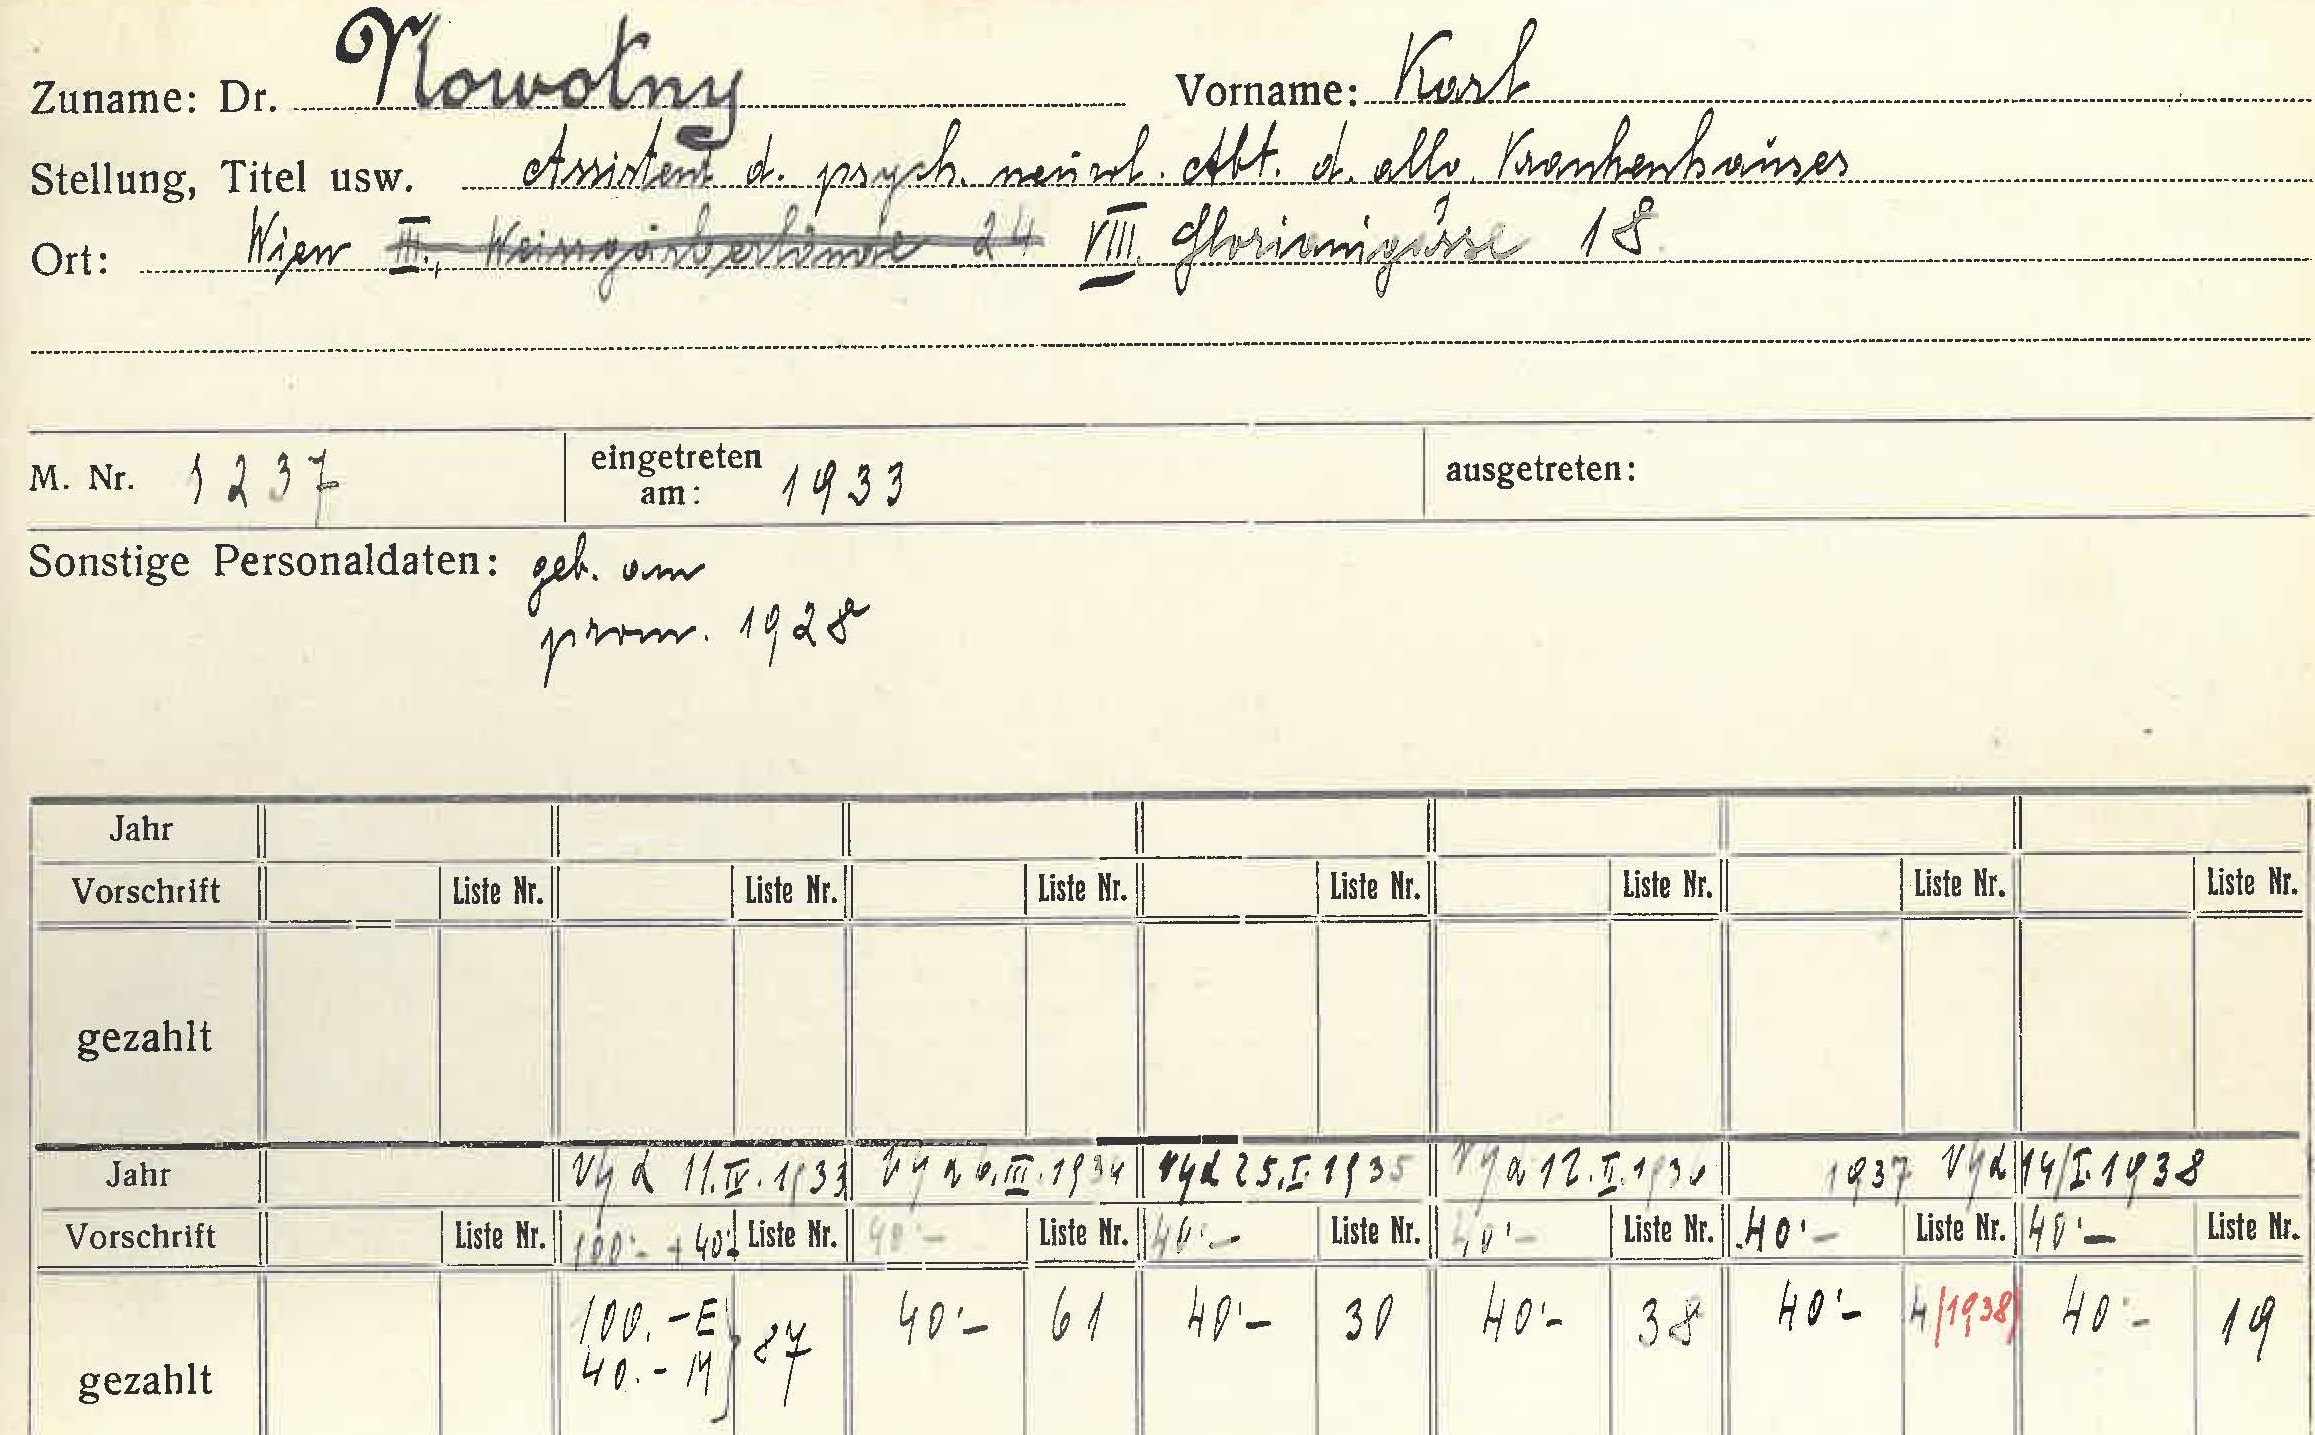 Zuname: Dr. Nowotny Vorname: Karl
Stellung, Titel usw. Assistent d. psych. neurol. Abt. d. allg. Krankenhauses
Ort: Wien III., Weissgärberlände 24 VIII. Florianigasse 18
M. Nr. 1237 eingetreten am: 1933 ausgetreten:
Sonstige Personaldaten: geb. am
prom. 1928
Jahr
Vorschrift Liste Nr. Liste Nr. Liste Nr. Liste Nr. Liste Nr. Liste Nr. Liste Nr.
gezahlt
Jahr 11.IV.1933 6.III.1934 25.I.1935 12.II.1936 1937 14/I.1938
Vorschrift Liste Nr. 100.- + 40.- Liste Nr. 40.- Liste Nr. 40.- Liste Nr. 40.- Liste Nr. 40.- Liste Nr. 40.- Liste Nr.
100.-E 87 40.- 61 40.- 30 40.- 38 40.- 4/1938 40.- 19
gezahlt 40.-M